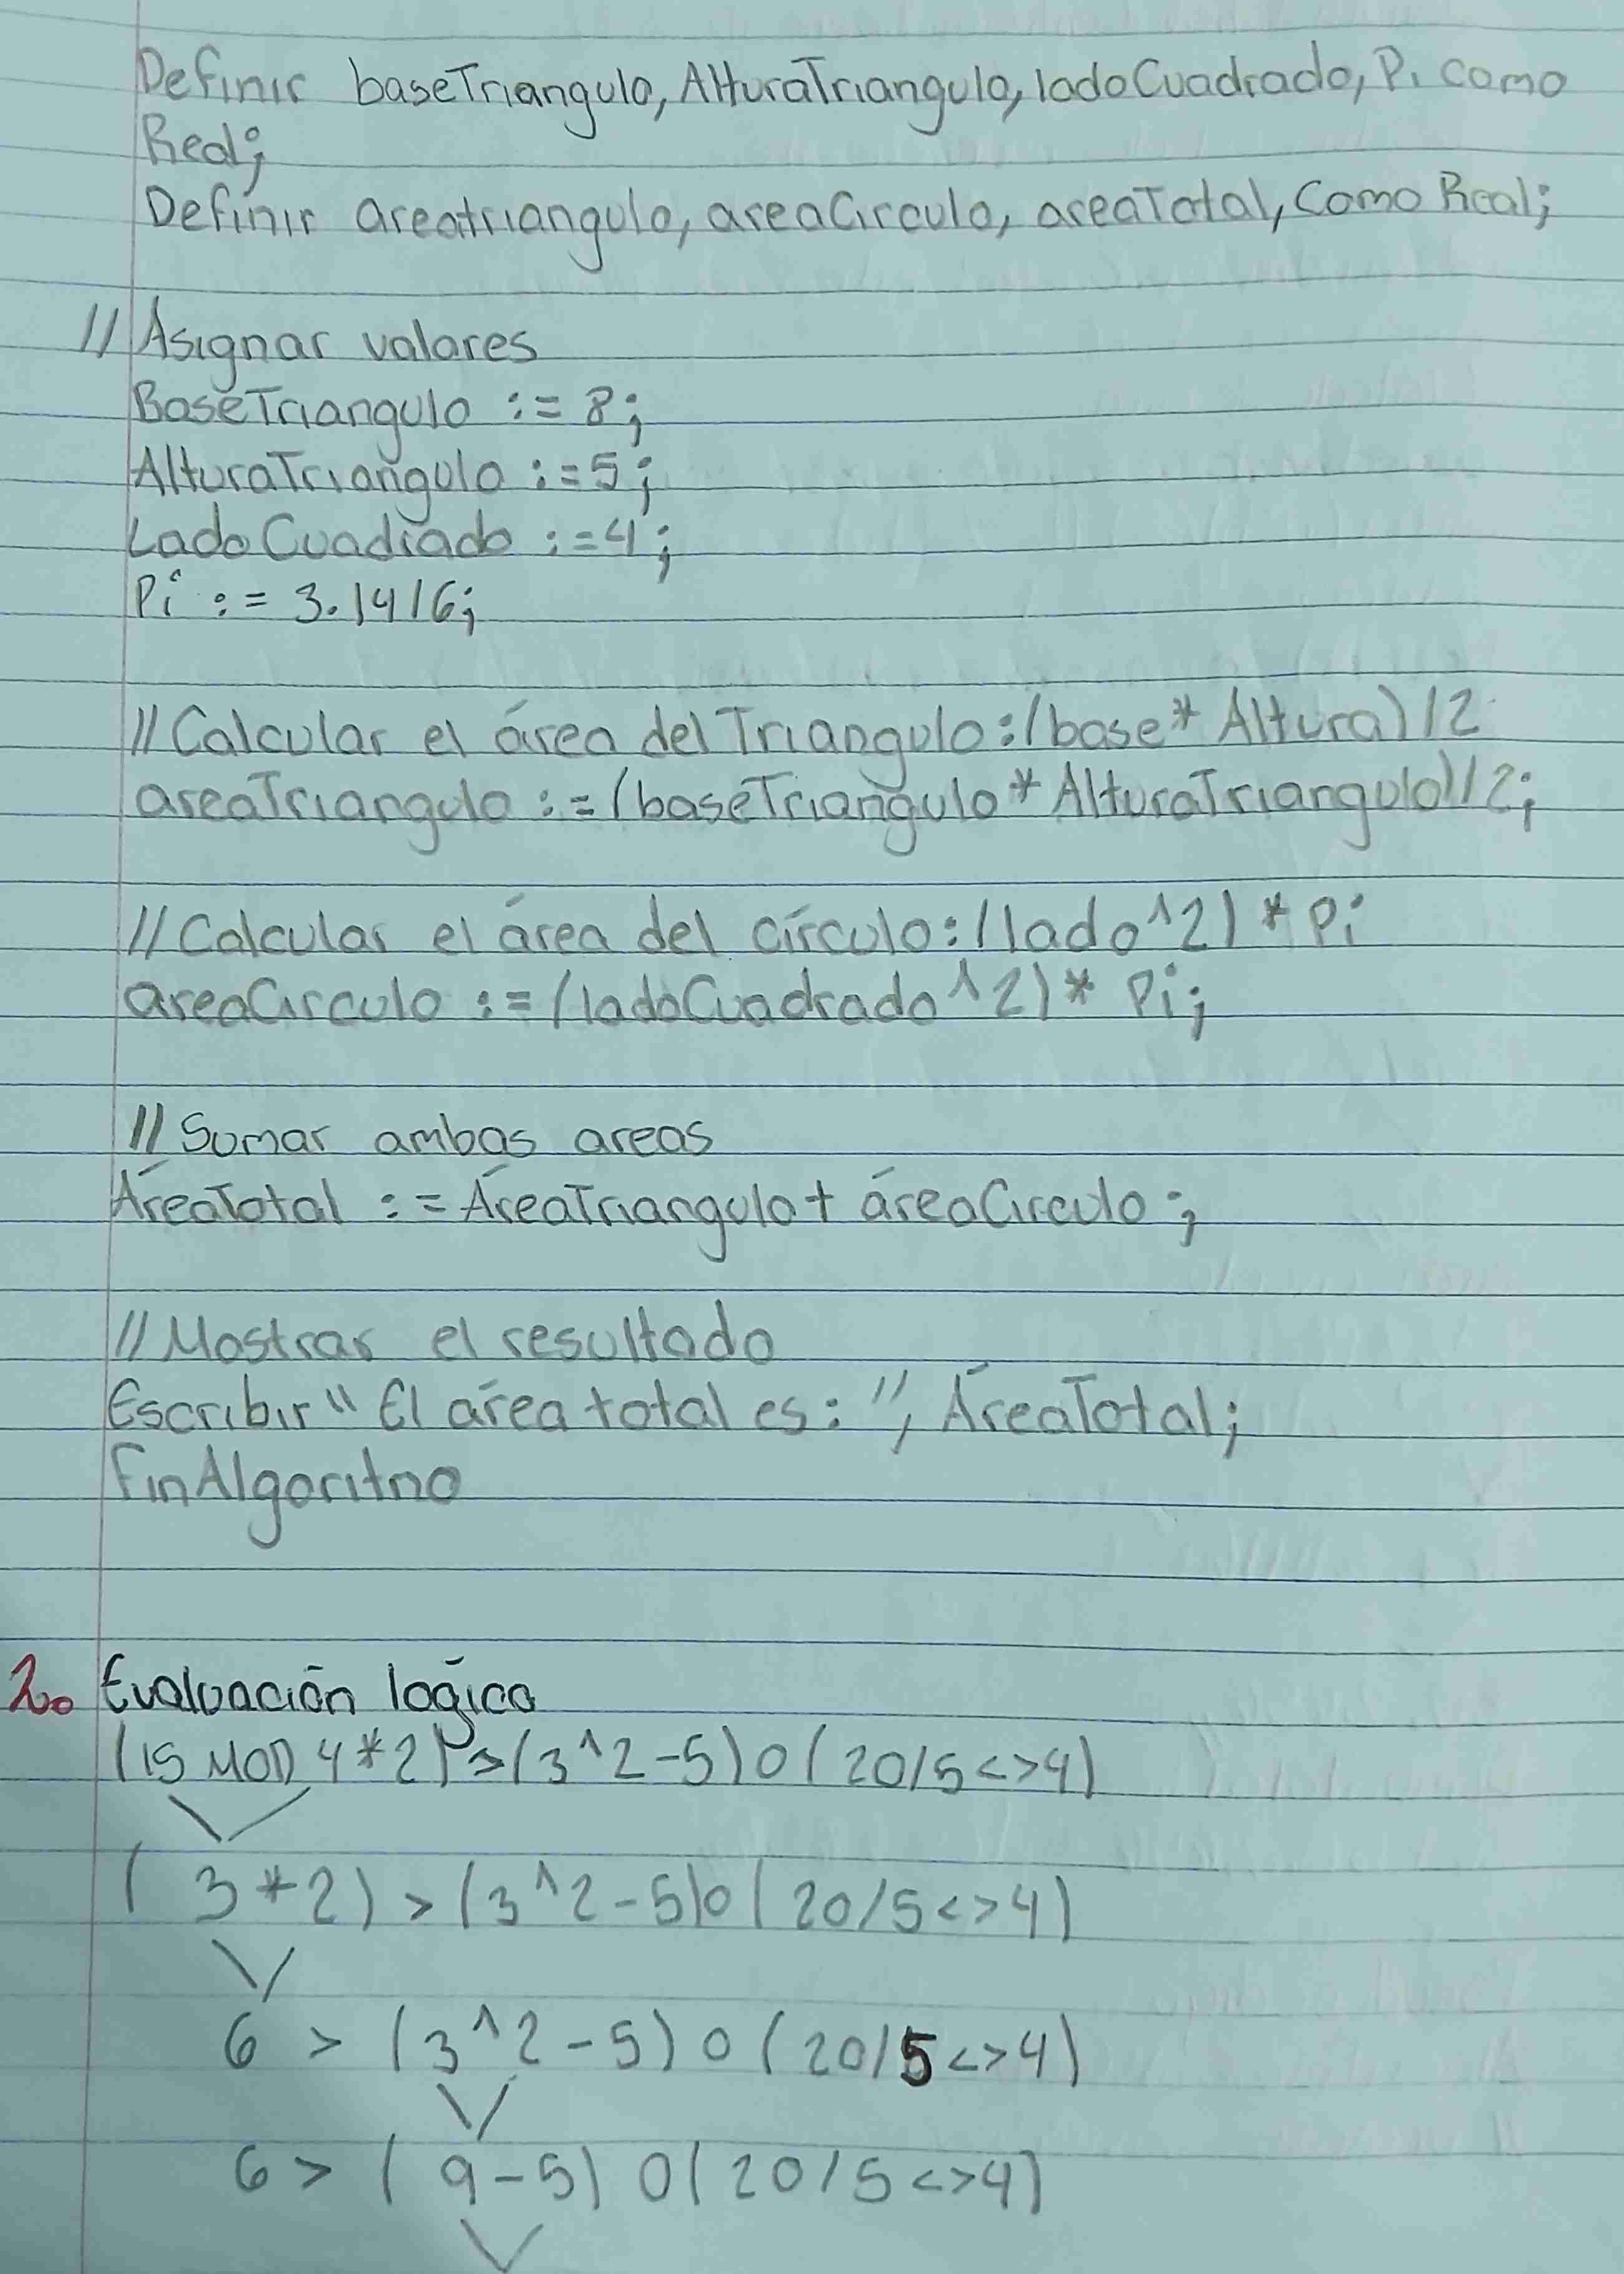 Definir baseTriangulo, AlturaTriangulo, ladoCuadrado, Pi como
Real;
Definir areatriangulo, areaCirculo, areaTotal, Como Real;
// Asignar valores
BaseTriangulo := 8;
AlturaTriangulo := 5;
LadoCuadrado := 4;
Pi := 3.1416;
// Calcular el área del Triangulo: (base * Altura) / 2
areaTriangulo := (baseTriangulo * AlturaTriangulo) / 2;
// Calcular el área del círculo: (lado^2) * Pi
areaCirculo := (ladoCuadrado^2) * Pi;
// Sumar ambas areas
ÁreaTotal := ÁreaTriangulo + áreaCirculo;
// Mostrar el resultado
Escribir " El área total es: ", ÁreaTotal;
FinAlgoritno
2. Evaluación lógica
(15 MOD 4 * 2) > (3^2 - 5) O (20/5 <> 4)
( 3 * 2) > (3^2 - 5) o (20/5 <> 4)
6 > (3^2 - 5) o (20/5 <> 4)
6 > (9 - 5) O (20/5 <> 4)